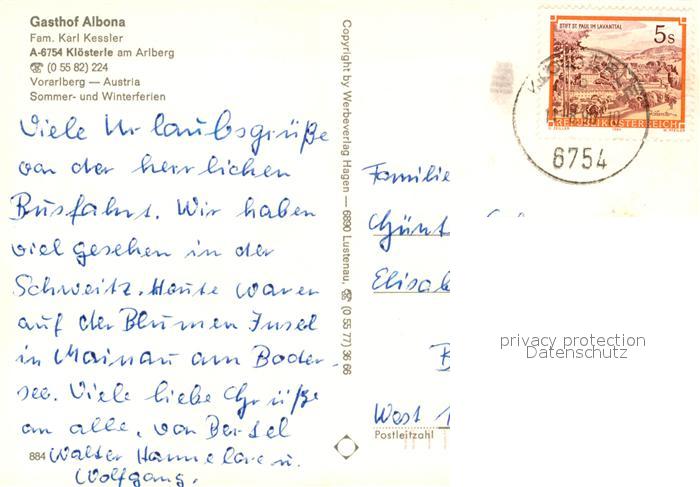 Gasthof Albona
Fam. Karl Kessler
A-6754 Klösterle am Arlberg
☎ (0 55 82) 224
Vorarlberg — Austria
Sommer- und Winterferien
Viele Urlaubsgrüße
von der herrlichen
Busfahrt. Wir haben
viel gesehen in der
Schweitz. Heute waren
auf der Blumen Insel
in Mainau am Boden-
see. Viele liebe Grüße
an alle, von Bertel
Walter Hannelore u.
Wolfgang.
884
Copyright by Werbeverlag Hagen — 6890 Lustenau, ☎ (0 55 77) 36 66
STIFT ST. PAUL IM LAVANTTAL
5 S
REPUBLIK ÖSTERREICH
6754
Familie
Günt
Elisab
B
West
Postleitzahl
privacy protection
Datenschutz